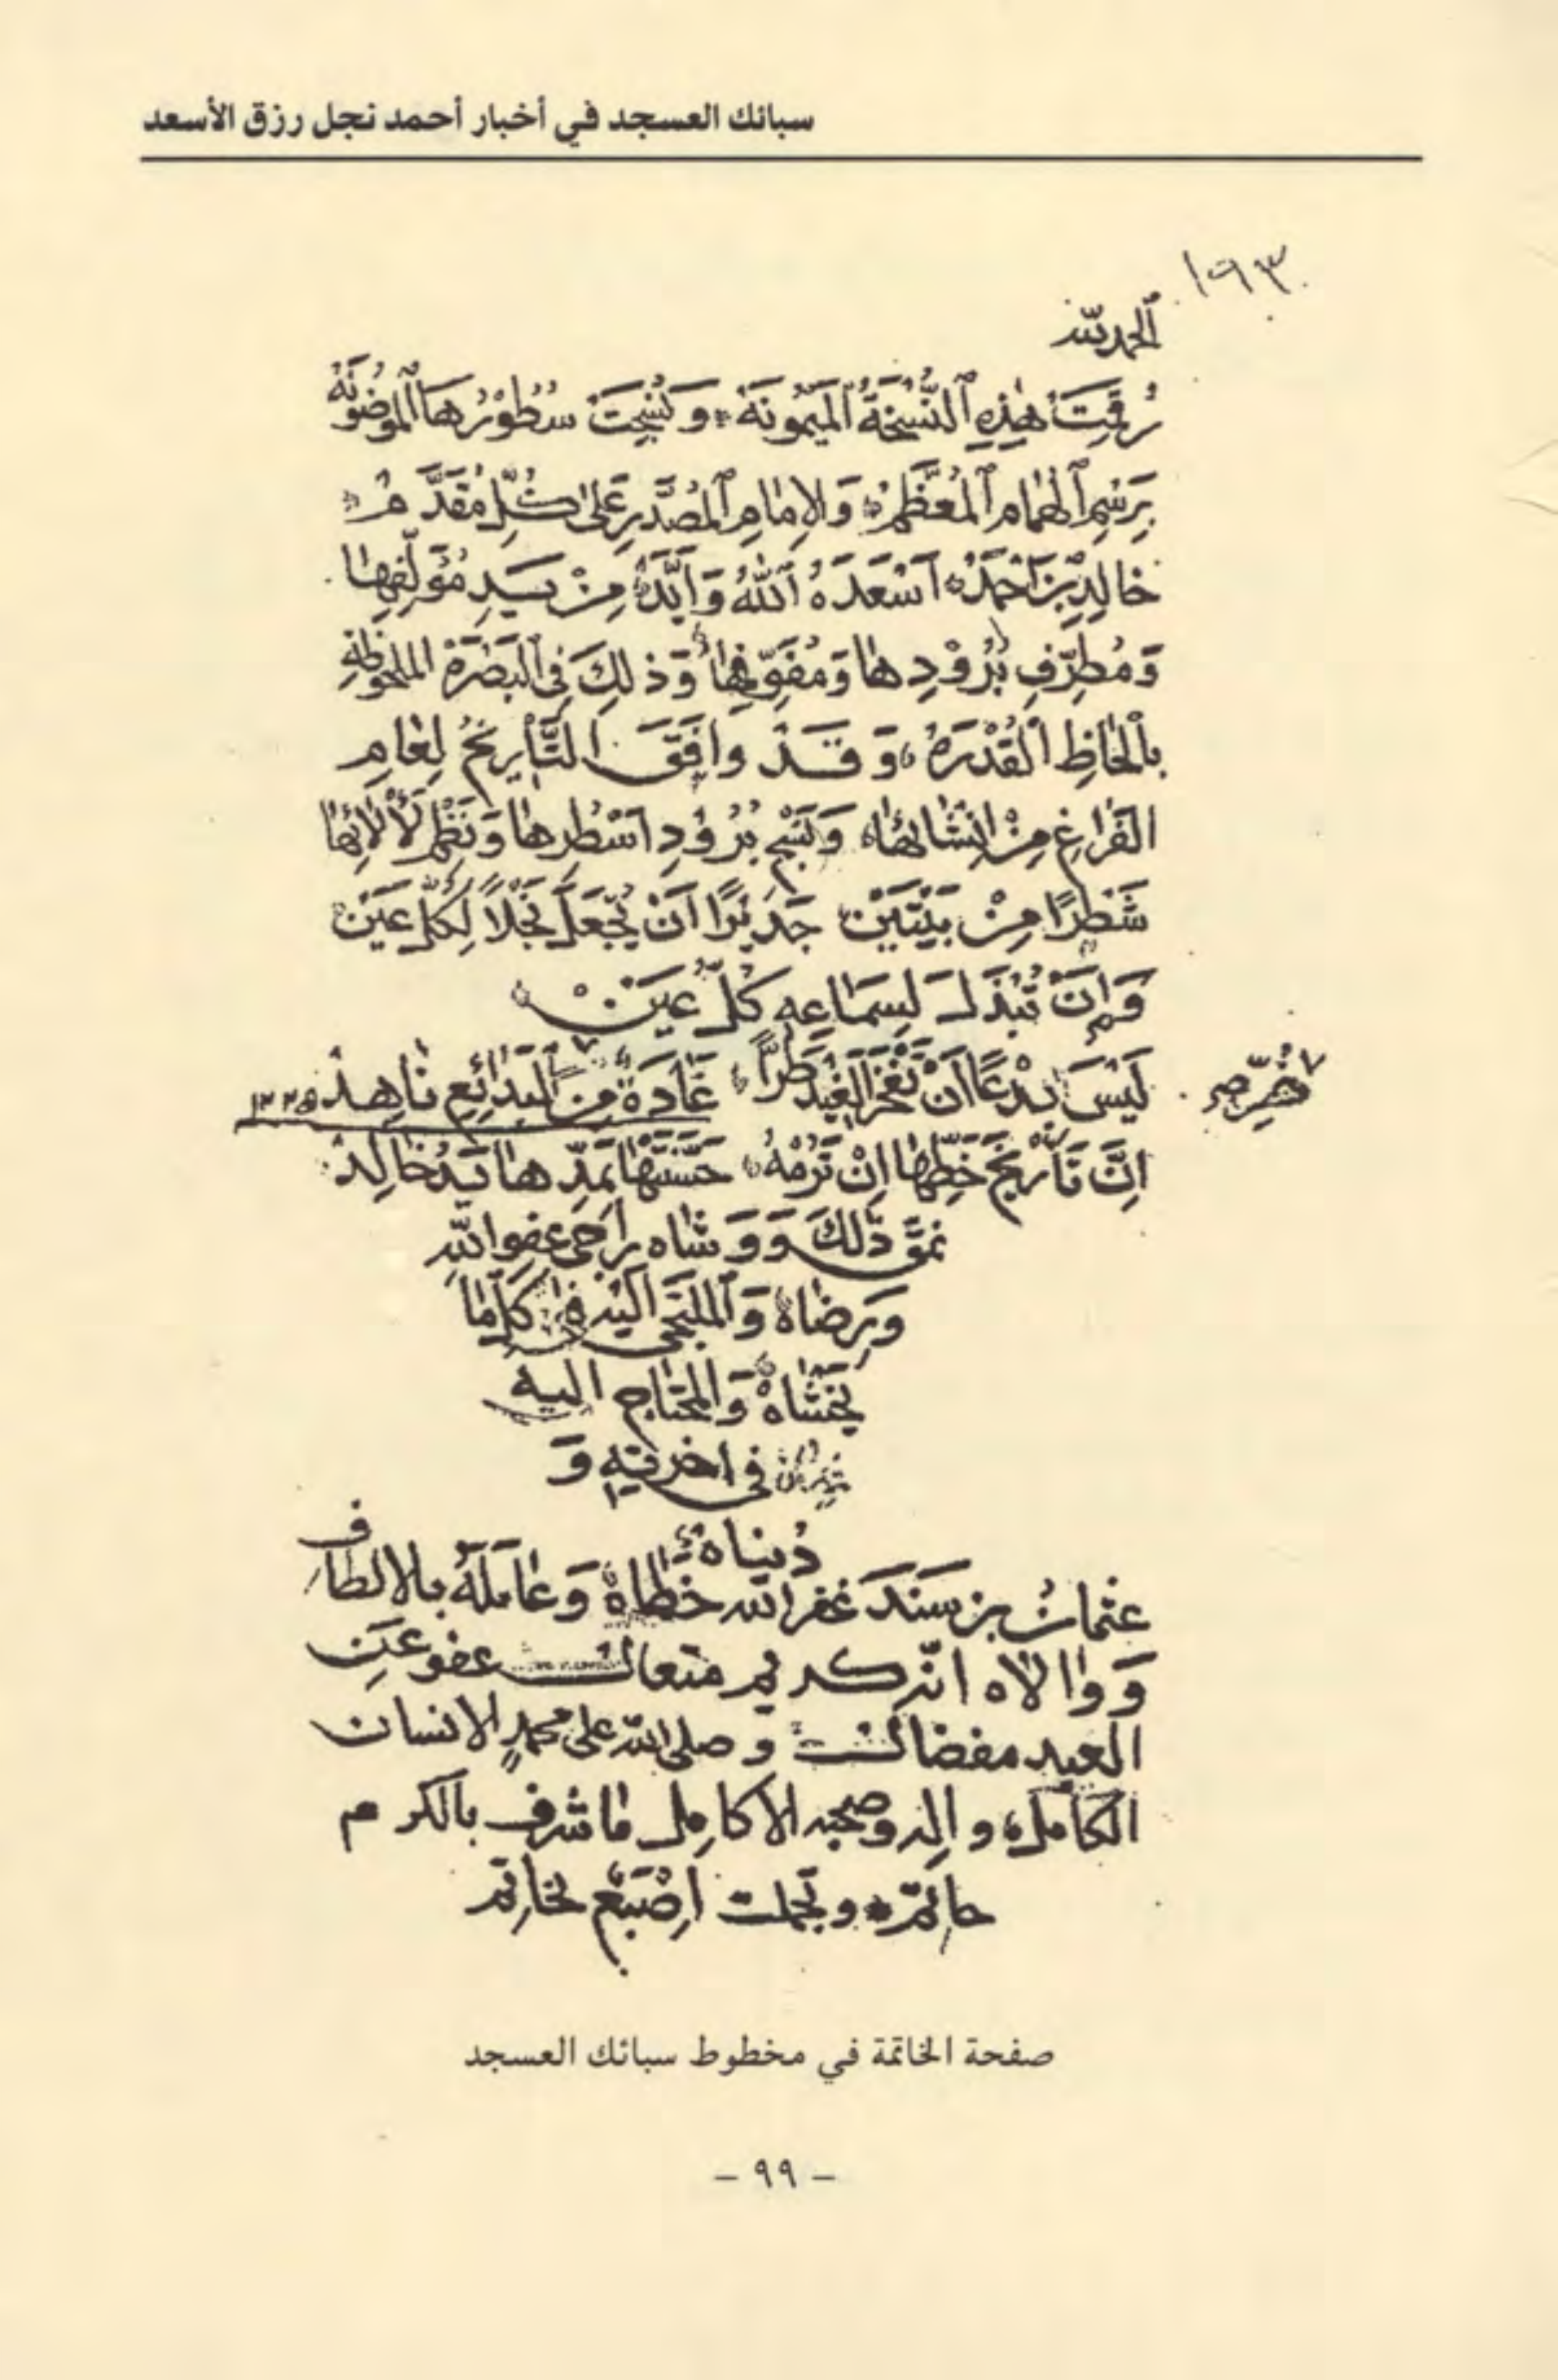 سبائك العسجد في أخبار أحمد نجل رزق الأسعد
١٩٣
الحمد لله
رُقِمَتْ هٰذِهِ ٱلنُّسْخَةُ ٱلْمَيْمُونَة وَنُسِجَتْ سُطُوْرُهَا ٱلْمَوْضُونَةُ
بِرَسْمِ ٱلْهُمَامِ ٱلْمُعَظَّمْ وَالإِمَامِ ٱلْمُصَدَّرِ عَلىٰ كُلِّ مُقَدَّمْ
خَالِدِ بْنِ اَحْمَدْ اَسْعَدَهُ ٱللّٰهُ وَاَيَّدَهْ مِنْ يَدِ مُؤَلِّفِهَا
وَمُطَرِّفِ بُرُوْدِهَا وَمُفَوِّفِهَا وَذٰلِكَ فِي الْبَصْرَة الملحوظةِ
بِاَلْحَاظِ الْقُدْرَهْ وَقَدْ وَافَقَ التَّأرِيخُ لِعَامِ
الفَرَاغِ مِنْ اِنْشَائِهَا وَنَسْجِ بُرُوْدِ اَسْطُرِهَا وَنَظْمِ لَأْلَائِهَا
شَطْرًا مِنْ بَيْتَيْنْ جَدِيْرًا اَنْ يُجْعَلَ نَجْلاً لِكُلِّ عَيْنْ
وَاَنْ تُبْذَلَ لِسَمَاعِهِ كُلُّ عَيْنْ
لَيْسَ بِدْعًا اَنْ تَفْخَرَ الْغِيْدَ طُرًّا غَادَةٌ مِنَ الْبَدَائِعِ نَاهِدْ ١٢٢٥
اِنَّ تَأْرِيْخَ خَطِّهَا اِنْ تَرُمْهُ حَسَّنَتْهَا بِمَدِّهَا يَدُ خَالِدْ
نمَّق ذٰلِكَ وَوَشَاه رَاجي عفو اللّٰهِ
وَرِضَاهْ وَالْمُلْتَجِي اِلَيْهِ فِي كلِّ مَا
يَخْشَاهْ وَالمحتَاج اليه
في اخرته وَ
دُنياه
عثمانُ بن سَنَدَ غفر الله خطاهْ وَعَامَلَهُ بالالطاف
وَوَالاه انّه كريم متعال عفو عَنِ
العبد مفضال وصلى الله على محمدٍ الانسان
الكامل والهِ وصحبه الاكامِل ما شرف بالكرم
حاتم وتجملت اِصْبَعْ بخاتم
صفحة الخاتمة في مخطوط سبائك العسجد
- ٩٩ -